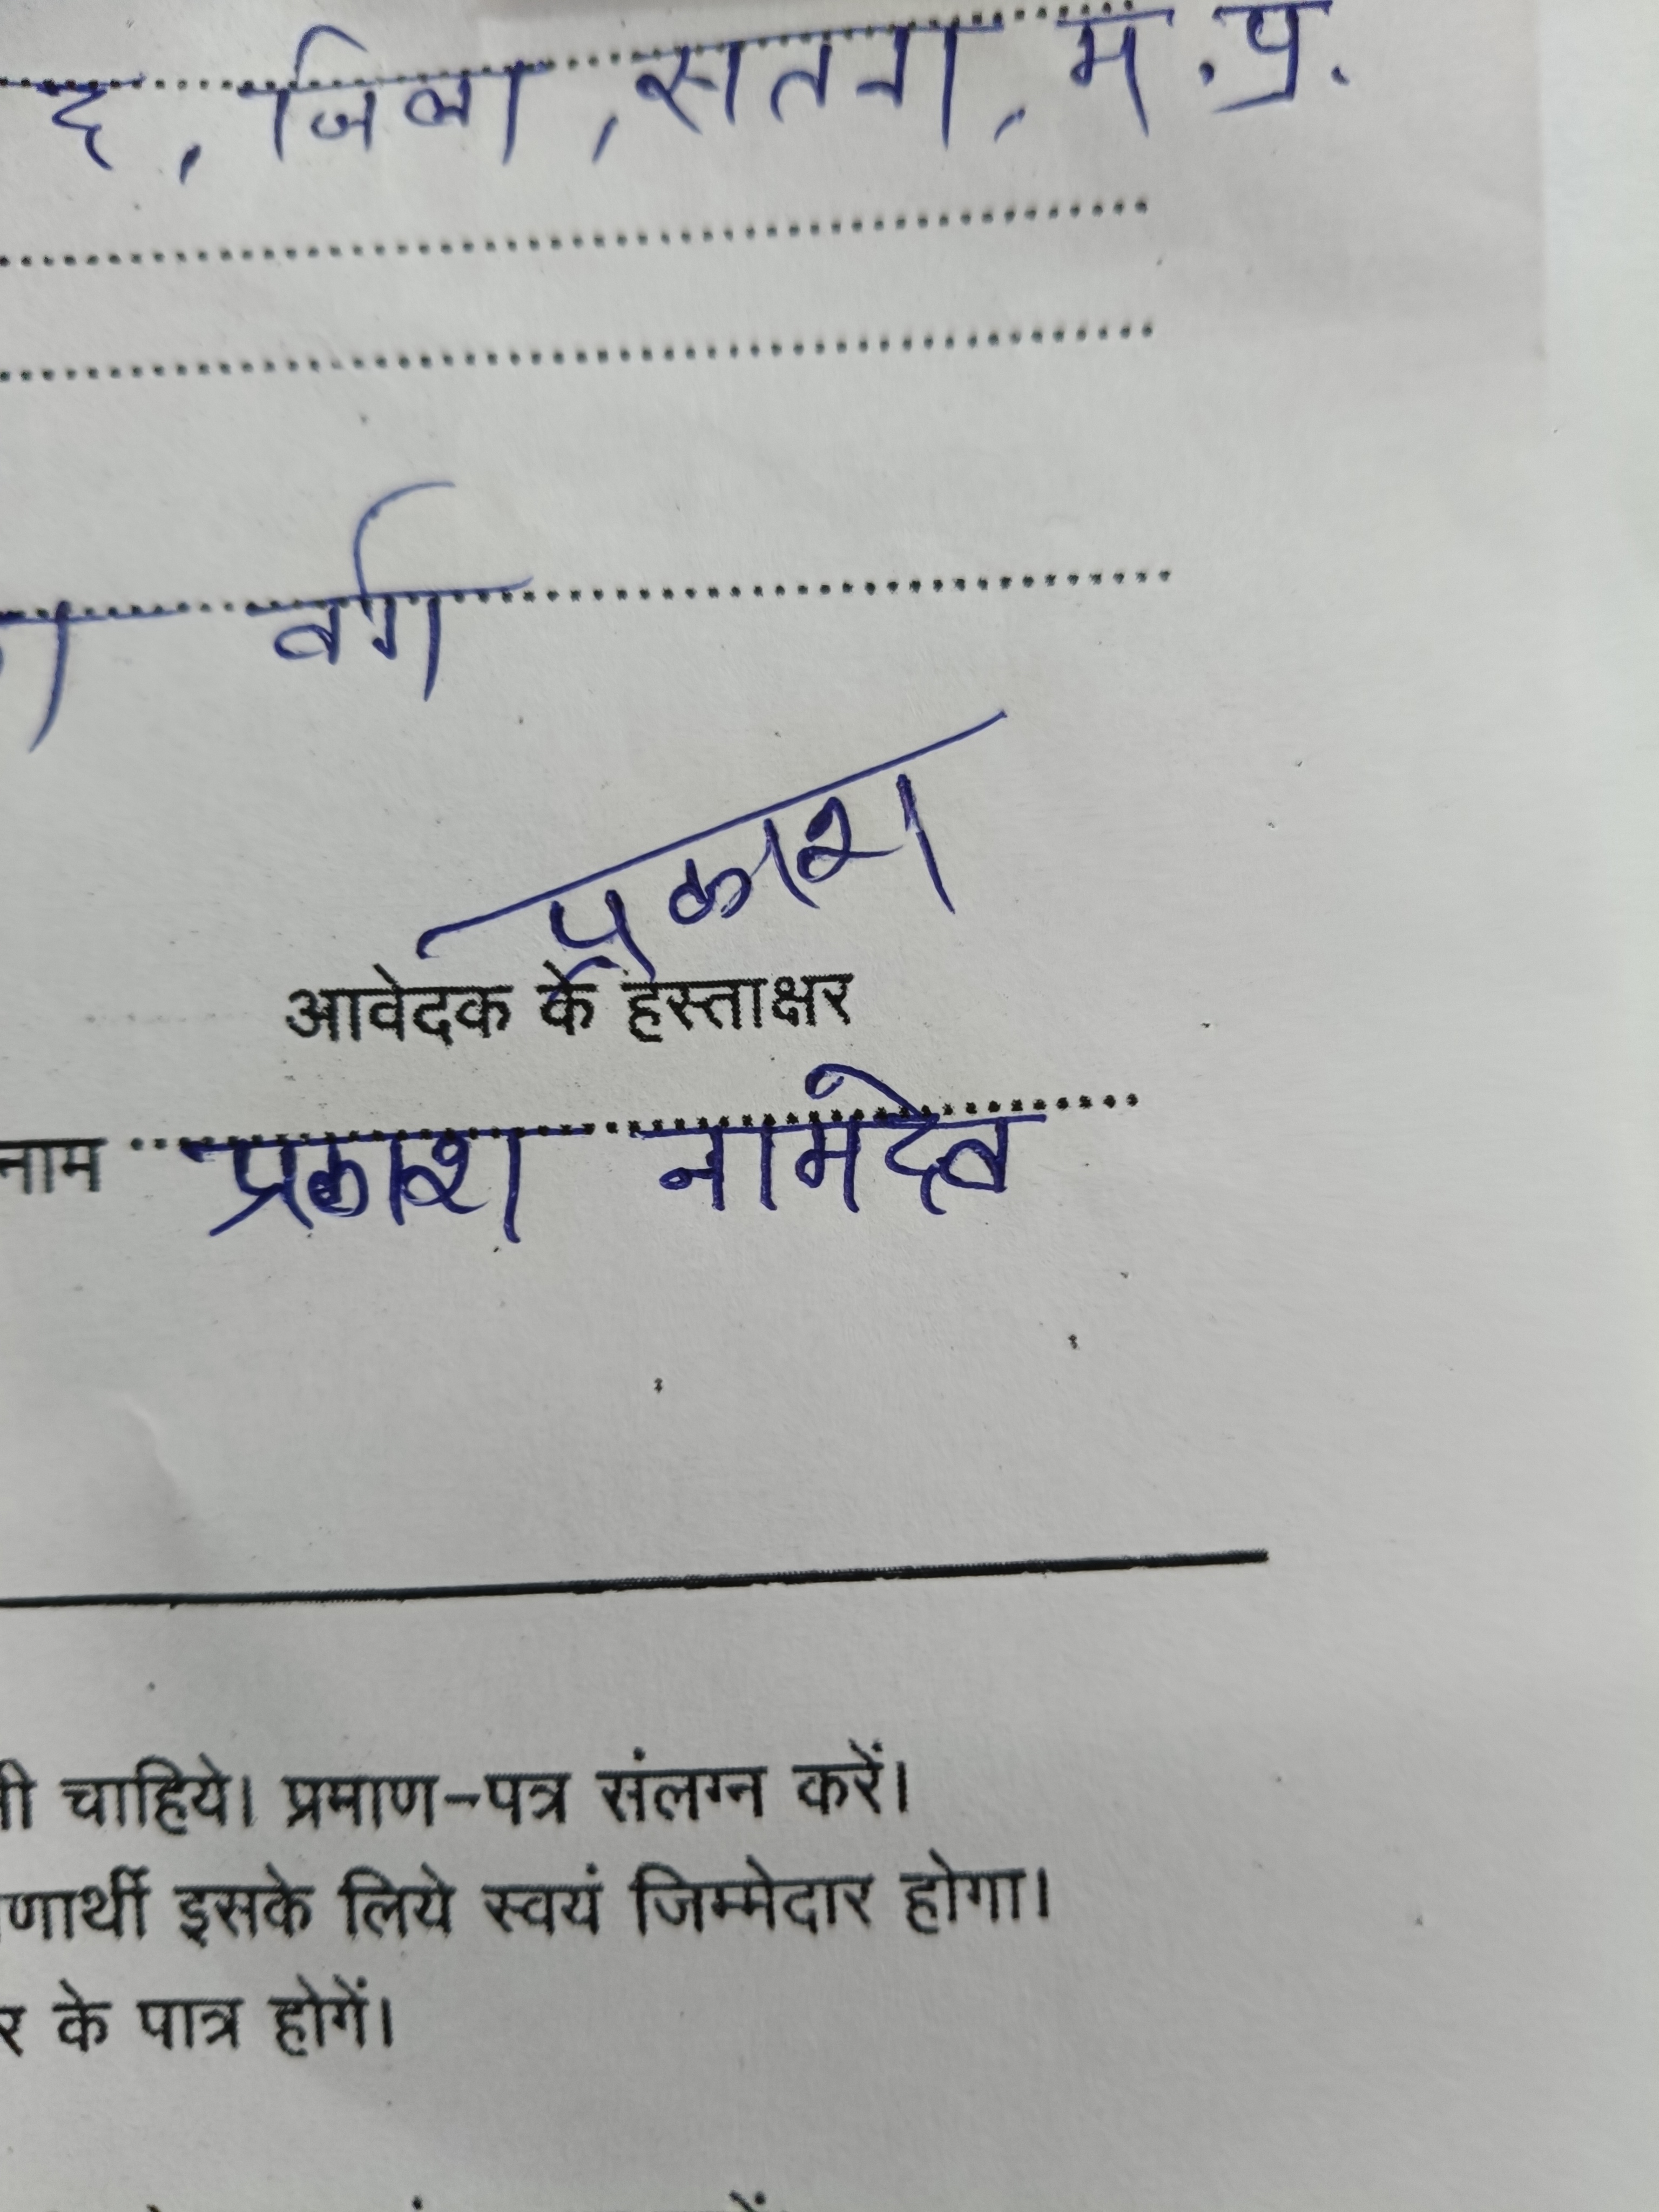 द, जिला, सतना, म.प्र.
वर्ग
प्रकाश
आवेदक के हस्ताक्षर
नाम प्रकाश नामदेव
ी चाहिये। प्रमाण-पत्र संलग्न करें।
णार्थी इसके लिये स्वयं जिम्मेदार होगा।
र के पात्र होगें।